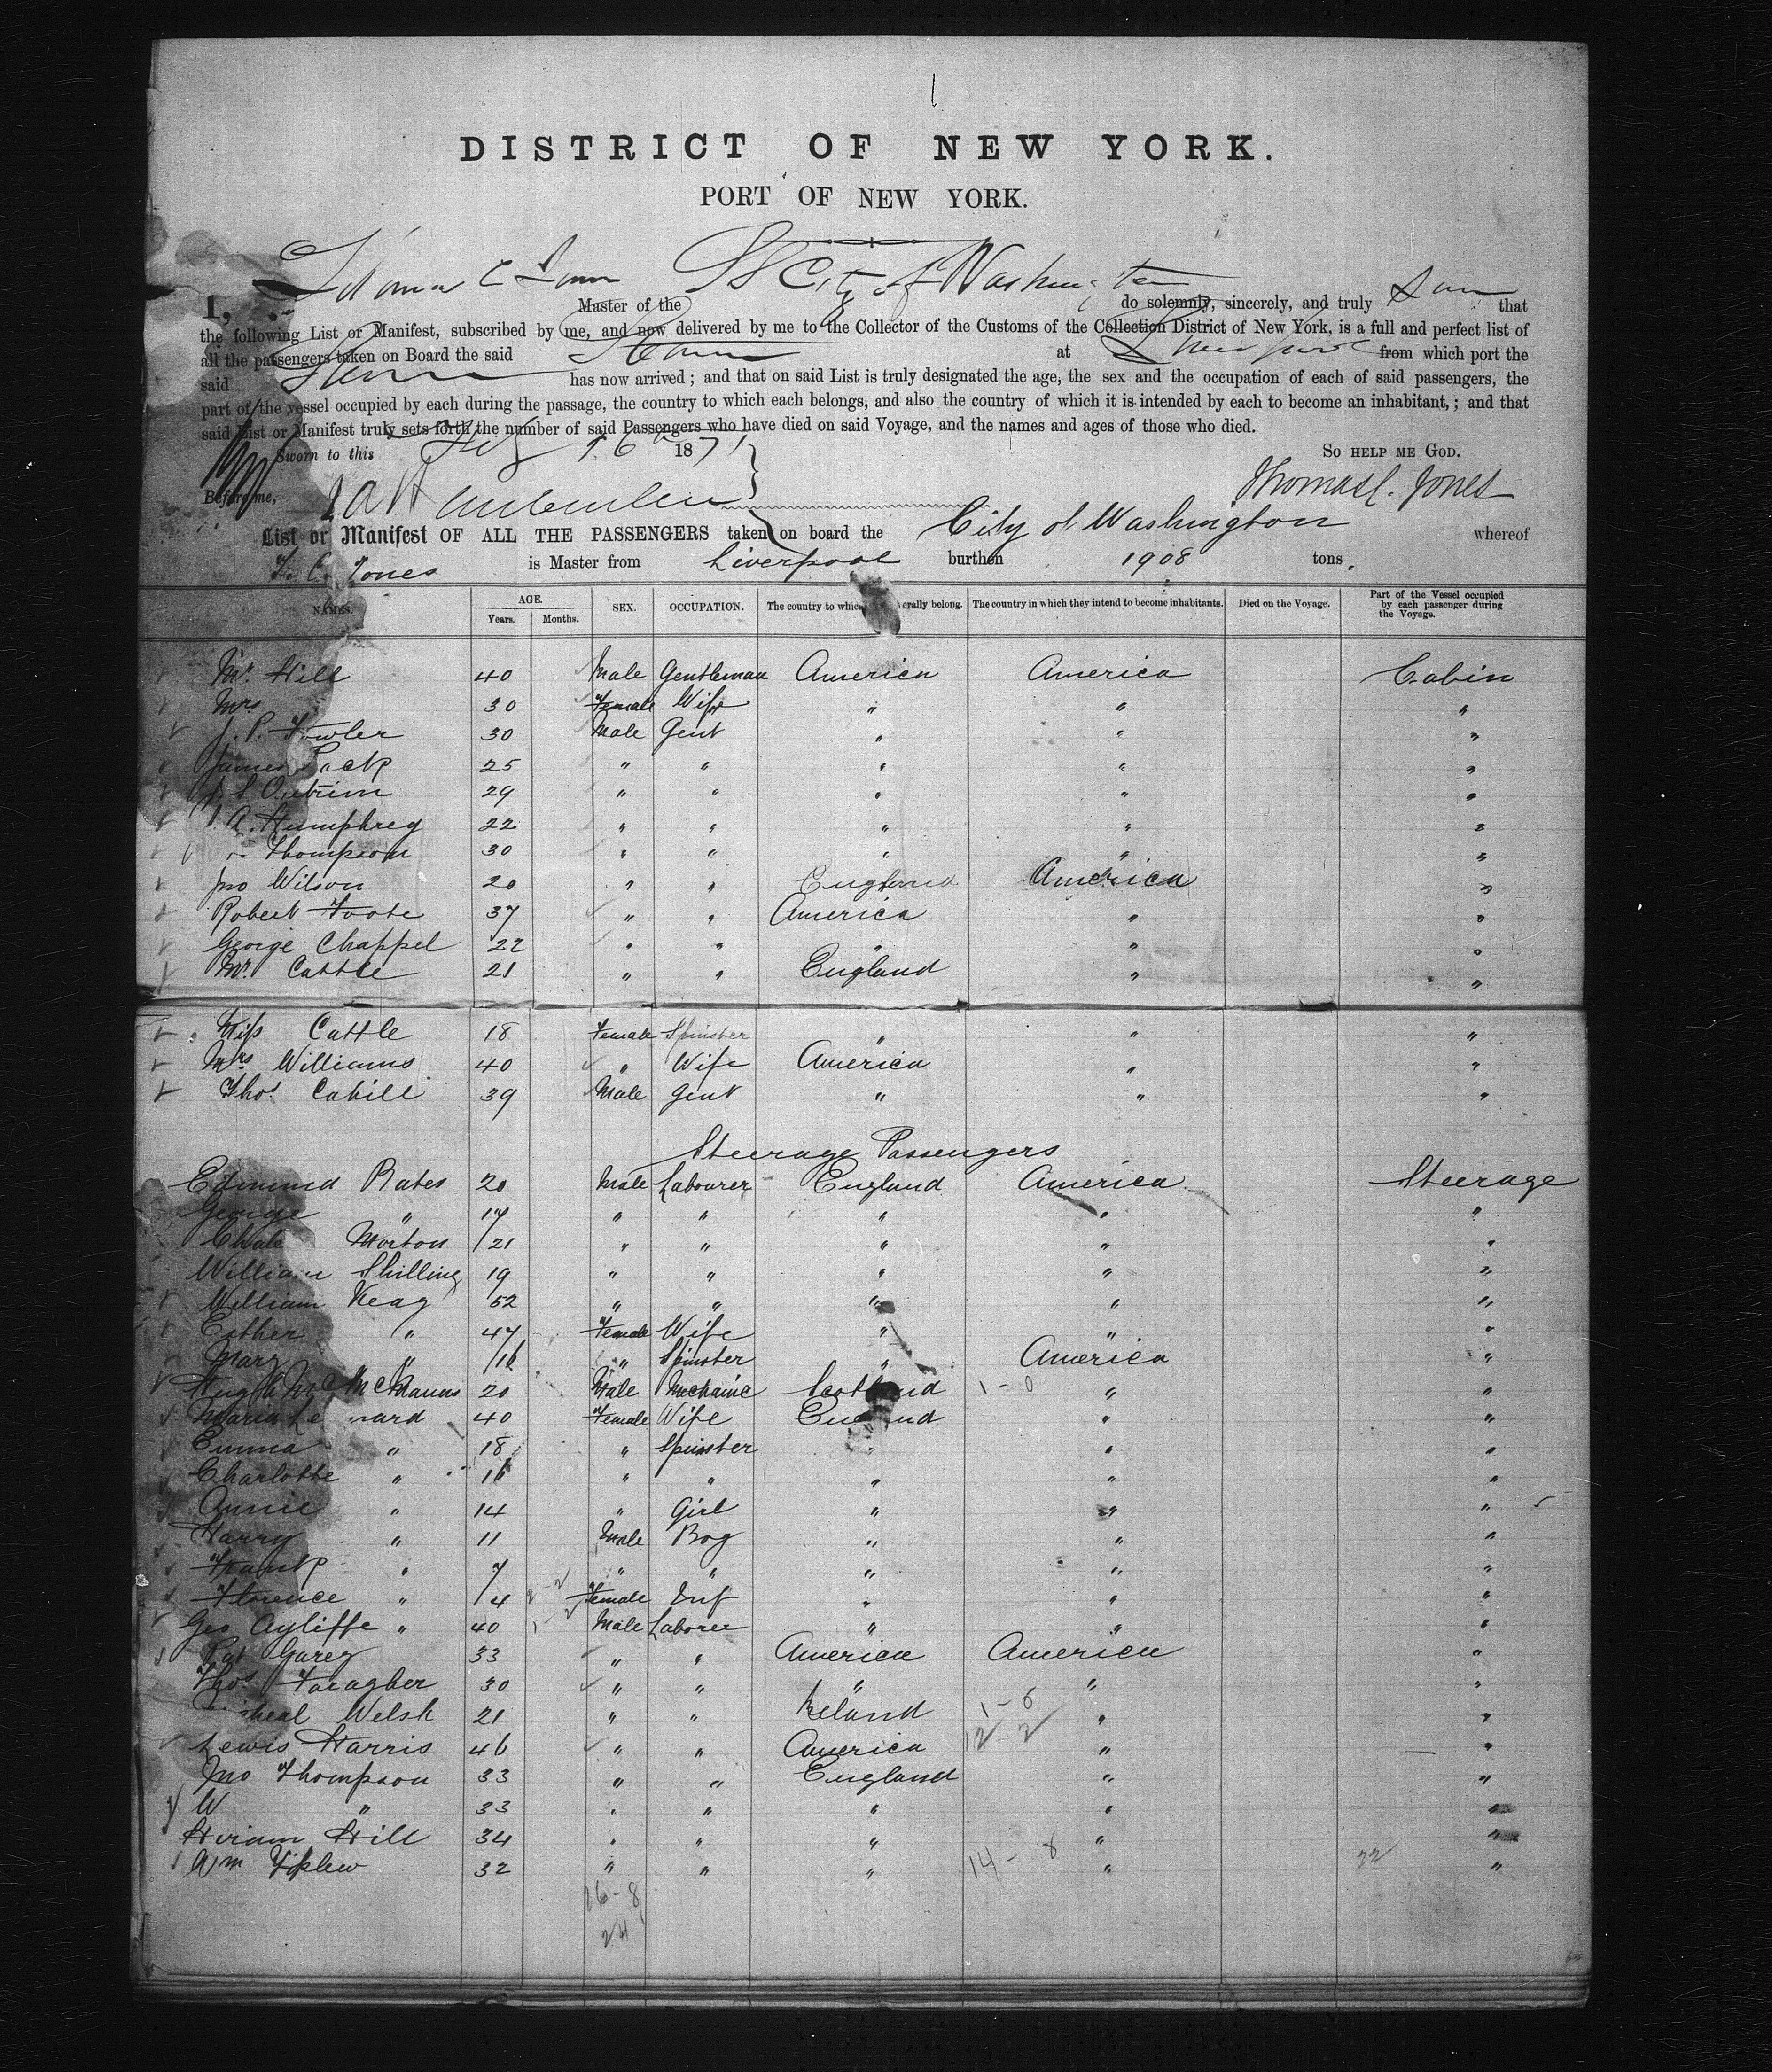 1
DISTRICT OF NEW YORK.
PORT OF NEW YORK.
I, Thomas C Jones Master of the SS City of Washington do solemnly, sincerely, and truly that
the following List or Manifest, subscribed by me, and now delivered by me to the Collector of the Customs of the Collection District of New York, is a full and perfect list of
all the passengers taken on Board the said Steamer at Liverpool from which port the
said Steamer has now arrived ; and that on said List is truly designated the age, the sex and the occupation of each of said passengers, the
part of the vessel occupied by each during the passage, the country to which each belongs, and also the country of which it is intended by each to become an inhabitant, ; and that
said List or Manifest truly sets forth the number of said Passengers who have died on said Voyage, and the names and ages of those who died.
Sworn to this 16th 1871 So help me God.
Before me, Thomas C. Jones
List or Manifest OF ALL THE PASSENGERS taken on board the City of Washington whereof
T. C. Jones is Master from Liverpool burthen 1908 tons.
NAMES. AGE. Years. Months. SEX. OCCUPATION. The country to which erally belong. The country in which they intend to become inhabitants. Died on the Voyage. Part of the Vessel occupied by each passenger during the Voyage.
Mr. Hill 40 Male Gentleman America America Cabin
Mrs 30 Female Wife " " "
J. P. Fowler 30 Male Gent " " "
James Pack 25 " " " " "
J S Outrim 29 " " " " "
A. Humphrey 22 " " " " "
Thompson 30 " " " " "
Jno Wilson 20 " " England America "
Robert Foote 37 " " America " "
George Chappel 22 " " " " "
Mr. Cattle 21 " " England " "
Miss Cattle 18 Female Spinster " " "
Mrs Williams 40 " Wife America " "
Thos. Cahill 39 Male Gent " " "
Steerage Passengers
Edmund Bates 20 Male Labourer England America Steerage
George " 17 " " " " "
Chas Morton 21 " " " " "
William Shilling 19 " " " " "
William Keag 52 " " " " "
Esther " 47 Female Wife " " "
Mary " 16 " Spinster " America "
Hugh McManus 20 Male Mechanic Scotland 1-0 " "
Maria Le nard 40 Female Wife England " "
Emma " 18 " Spinster " " "
Charlotte " 16 " " " " "
Annie " 14 " Girl " " "
Harry " 11 Male Boy " " "
Frank " 7 " " " " "
Florence " 4 Female Inf " " "
Geo Ayliffe " 40 Male Laborer " " "
Pat Garey 33 " " America America "
Thos Faragher 30 " " " " "
heal Welsh 21 " " Ireland 1-6 " "
Lewis Harris 46 " " America 12-2 " "
Jno Thompson 33 " " England " "
W " 33 " " " " "
Hiram Hill 34 " " " " "
Wm 32 " " " 14-8 " 22 "
26-8
24